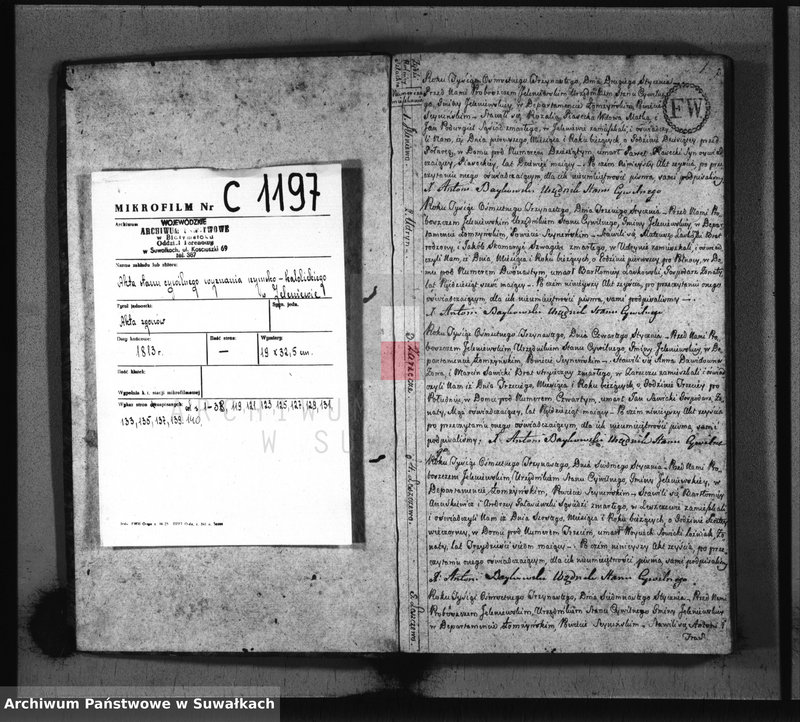 MIKROFILM Nr C 1197
Archiwum
WOJEWÓDZKIE
ARCHIWUM PAŃSTWOWE
w Białymstoku
Oddział Terenowy
w Suwałkach, ul. Kościuszki 69
tel. 387
Nazwa zakładu lub zbioru:
Akta stanu cywilnego wyznania rzymsko-katolickiego
w Jeleniewie
Tytuł jednostki:
Akta zgonów
Sygn. jedn.
Daty końcowe:
1813 r.
Ilość stron:
—
Wymiary:
19 x 32,5 cm.
Ilość klatek:
Wypełnia k. i. stacji mikrofilmowej
Wykaz stron
od s. 1-38, 119, 121, 123, 125, 127, 129, 131,
133, 135, 137, 139, 140,
1
FW
Roku Tysiąc Osmsetnego Trzynastego, Dnia Drugiego Stycznia
Przed Nami Proboszczem Jeleniewskim Urzędnikiem Stanu Cywilne
go, Gminy Jeleniewskiey, w Departamencie Łomżyńskim, Powiecie
Seyneńskim
zmarłego, w Jeleniewie zamieszkali, i oświadczy
li Nam, iż Dnia pierwszego, Miesiąca i Roku bieżących o Godzinie Dziewiątey przed
w Domu pod Numerem Dziesiątym, umarł Paweł
lat Dziewięć maiący - Po czem Ninieyszy Akt zeyścia, po prze
czytaniu onego oświadczaiącym, dla ich nieumieiętności pisma, sami podpisaliśmy
X. Antoni Baykowski Urzędnik Stanu Cywilnego
Roku Tysiąc Ośmsetnego Trzynastego, Dnia Trzeciego Stycznia - Przed Nami Pro
boszczem Jeleniewskim Urzędnikiem Stanu Cywilnego, Gminy Jeleniewskiey, w Depar
tamencie Łomżyńskim, Powiecie Seyneńskim - Stawili się Mateusz
rodzony, i Jakób zmarłego, w Udrynie zamieszkali, i oświad
czyli Nam, iż Dnia, Miesiąca i Roku bieżących, o Godzinie pierwszey po Północy, w Do
mu pod Numerem Dwunastym, umarł Bartłomiey Gospodarz Żonaty,
lat Pięćdziesiąt maiący - Po czem ninieyszy Akt zeyścia, po przeczytaniu onego
oświadczaiącym, dla ich nieumieiętności pisma, sami podpisaliśmy
X. Antoni Baykowski Urzędnik Stanu Cywilnego
Roku Tysiąc Ośmsetnego Trzynastego, Dnia Czwartego Stycznia - Przed Nami Pro
boszczem Jeleniewskim, Urzędnikiem Stanu Cywilnego, Gminy Jeleniewskiey, w De
partamencie Łomżyńskim, Powiecie Seyneńskim - Stawili się Anna
Żona, i Marcin Sawicki Brat stryieczny zmarłego, w Zarzeczu zamieszkali i oświad
czyli Nam iż Dnia Trzeciego, Miesiąca i Roku bieżących o Godzinie Trzeciey po
Południu, w Domu pod Numerem Czwartym, umarł Jan Sawicki Gospodarz Żo
naty, Mąż oświadczaiącey, lat Pięćdziesiąt maiący - Po czem ninieyszy Akt zeyścia
po przeczytaniu onego oświadczaiącym, dla ich nieumieiętności pisma, sami
podpisaliśmy X. Antoni Baykowski Urzędnik Stanu Cywilne
go
Roku Tysiąc Ośmsetnego Trzynastego, Dnia Siódmego Stycznia - Przed Nami Pro
boszczem Jeleniewskim Urzędnikiem Stanu Cywilnego, Gminy Jeleniewskiey, w
Departamencie Łomżyńskim, Powiecie Seyneńskim - Stawili się Bartłomiey
i Andrzey Sąsiedzi zmarłego, w Leszczewie zamieszkali
i oświadczyli Nam iż Dnia Szóstego, Miesiąca i Roku bieżących, o Godzinie
wieczorney, w Domu pod Numerem Trzecim, umarł Woyciech Żo
naty, lat Trzydzieści maiący - Po czem ninieyszy Akt zeyścia, po prze
czytaniu onego oświadczaiącym, dla ich nieumieiętności pisma, sami podpisaliśmy
X. Antoni Baykowski Urzędnik Stanu Cywilnego
Roku Tysiąc Ośmsetnego Trzynastego, Dnia Siódmego Stycznia - Przed Nami
Proboszczem Jeleniewskim, Urzędnikiem Stanu Cywilnego Gminy Jeleniewskiey
w Departamencie Łomżyńskim, Powiecie Seyneńskim - Stawili się Antoni
1. Jeleniewo
2. Udryn
3. Zarzecze
4. Leszczewo
5. Leszczewo
ARCHIWUM
W SUWAŁKACH
Archiwum Państwowe w Suwałkach